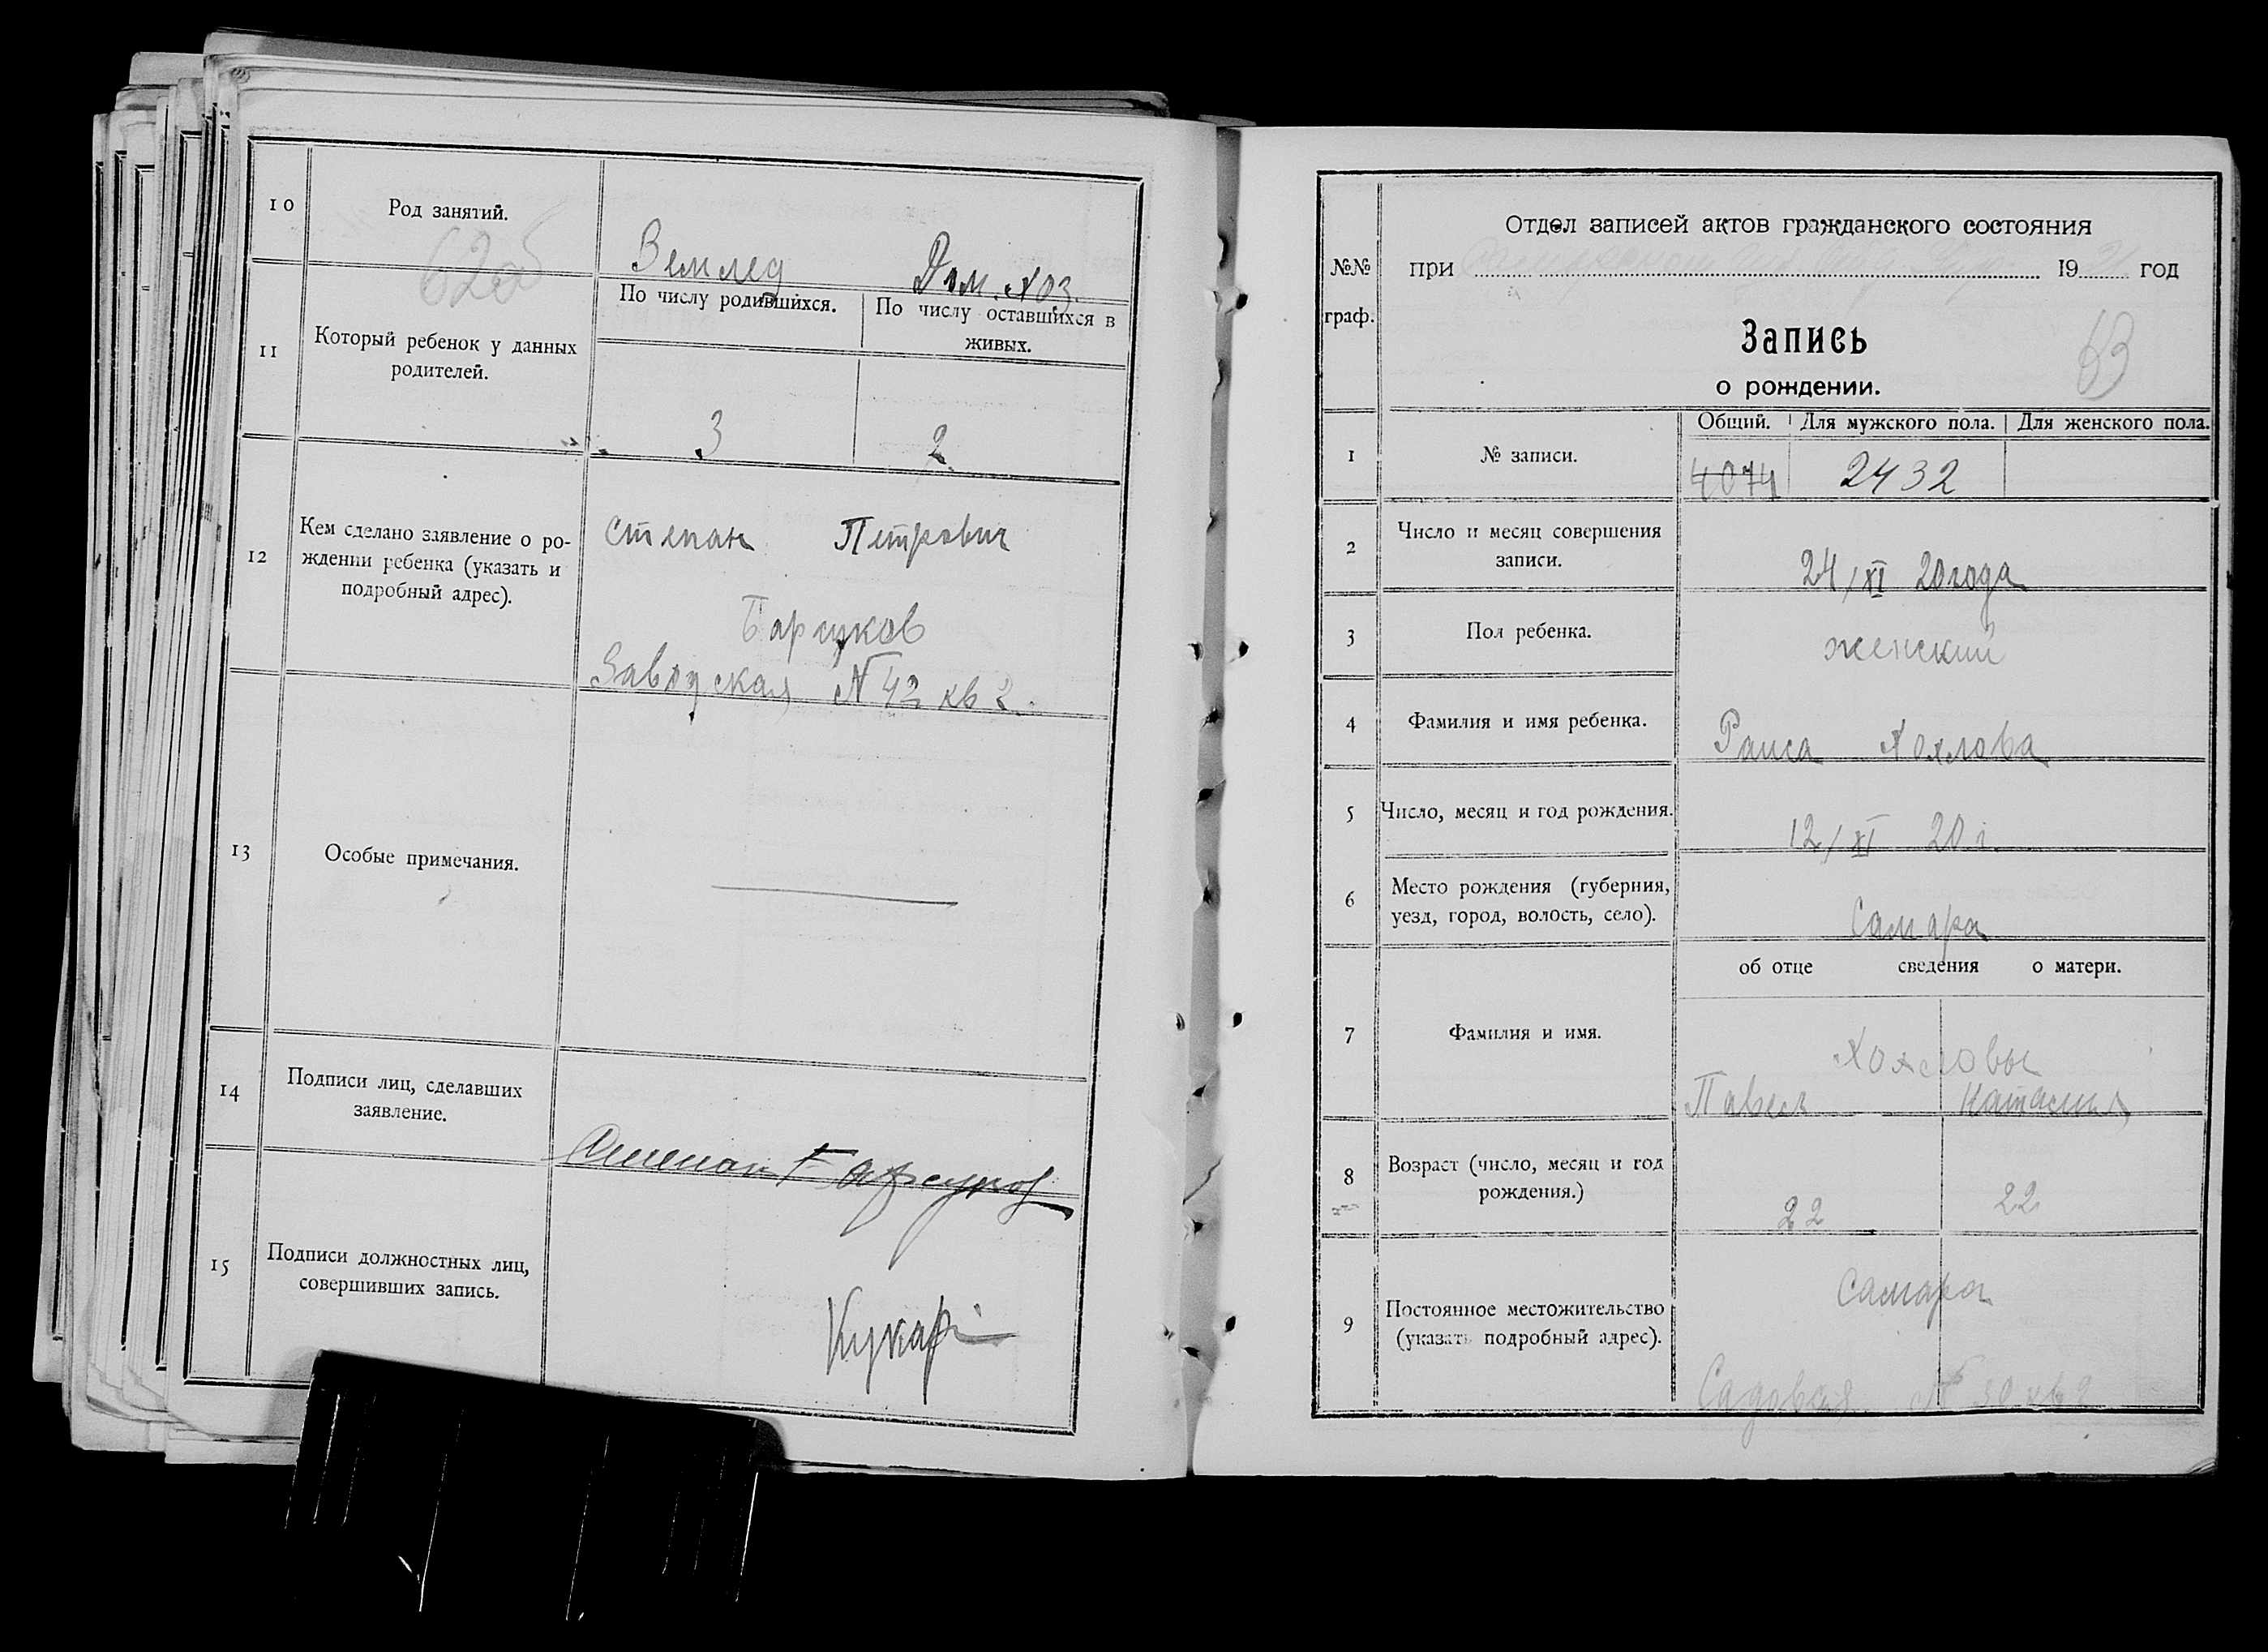 10
Род занятий.
Землед
Дом. хоз.
62об
11
Который ребенок у данных
родителей.
По числу родившихся.
По числу оставшихся в
живых.
3
2
12
Кем сделано заявление о ро-
ждении ребенка (указать и
подробный адрес).
Степан Петрович
Барсуков
Заводская № 42 кв 2.
13
Особые примечания.
14
Подписи лиц, сделавших
заявление.
Степан Барсуков
15
Подписи должностных лиц,
совершивших запись.
№№
граф.
Отдел записей актов гражданского состояния
при 19 год
Запись
о рождении.
63
1
№ записи.
Общий.
Для мужского пола.
Для женского пола.
4074
2432
2
Число и месяц совершения
записи.
24/XI 20 года
3
Пол ребенка.
женский
4
Фамилия и имя ребенка.
Раиса Хохлова
5
Число, месяц и год рождения.
12/XI 20 г.
6
Место рождения (губерния,
уезд, город, волость, село).
Самара
об отце сведения о матери.
7
Фамилия и имя.
Хохловы
Павел
8
Возраст (число, месяц и год
рождения.)
22
22
9
Постоянное местожительство
(указать подробный адрес).
Самара
Садовая № кв 2